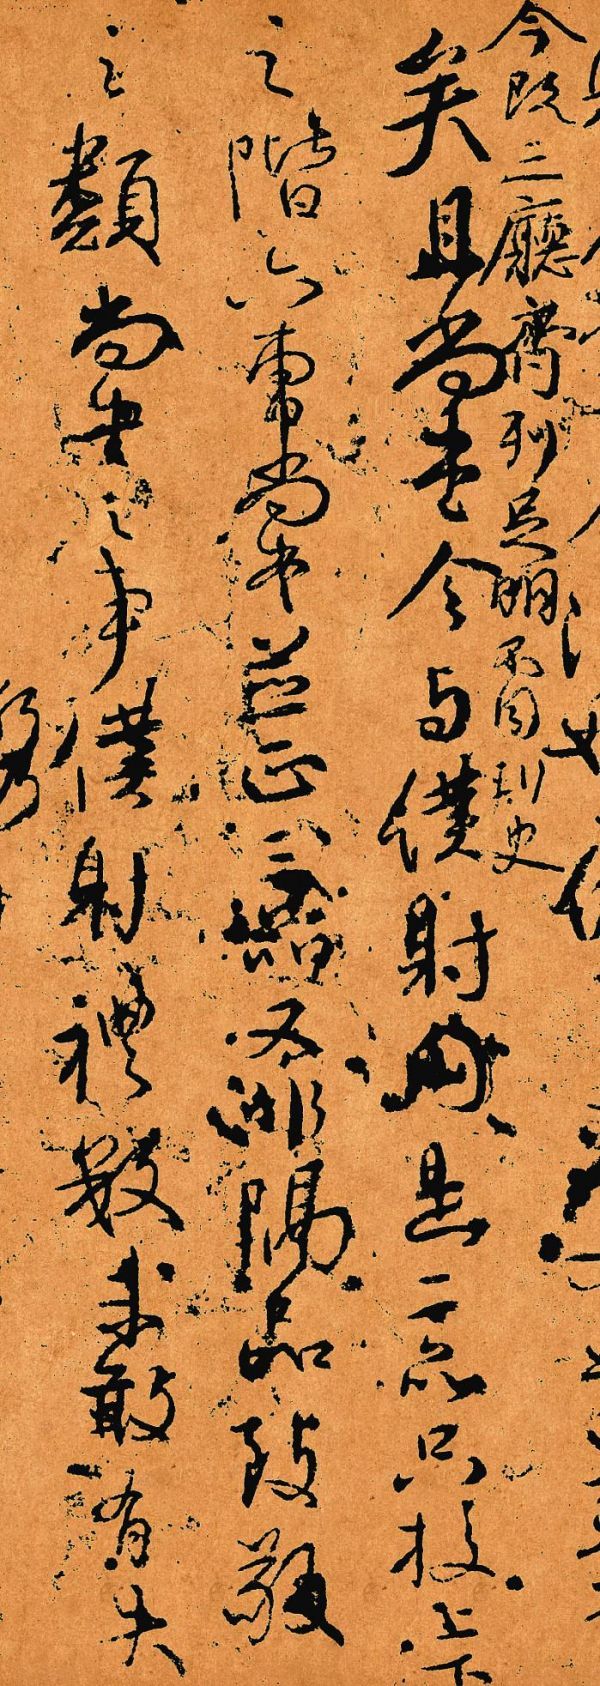 今既三廳齊列足明不同刺史
矣且尚書令与僕射同是二品只校上下
之階六曹尚書並正三品又非隔品致敬
之類尚書之事僕射禮數未敢有失